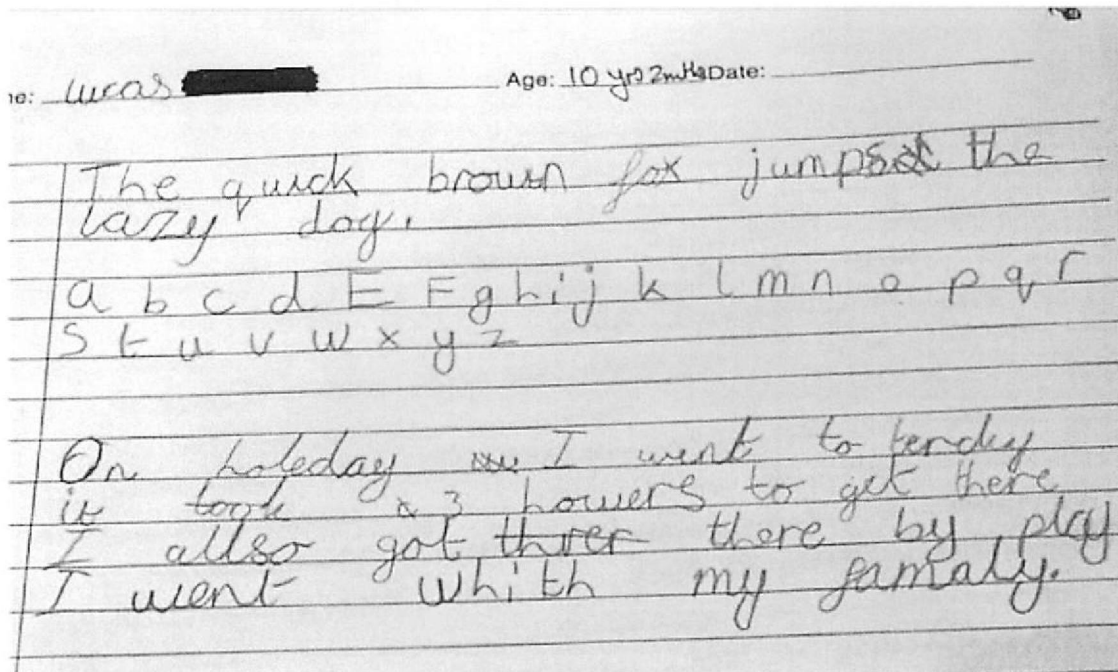 ne: Lucas Age: 10 yrs 2mths Date:
The quick brown fox jumps the
lazy dog.
a b c d E F g h i j k l m n o p q r
s t u v w x y z
On holeday I went to
it took 3 howers to get there
I allso got there by
I went whith my famaly.